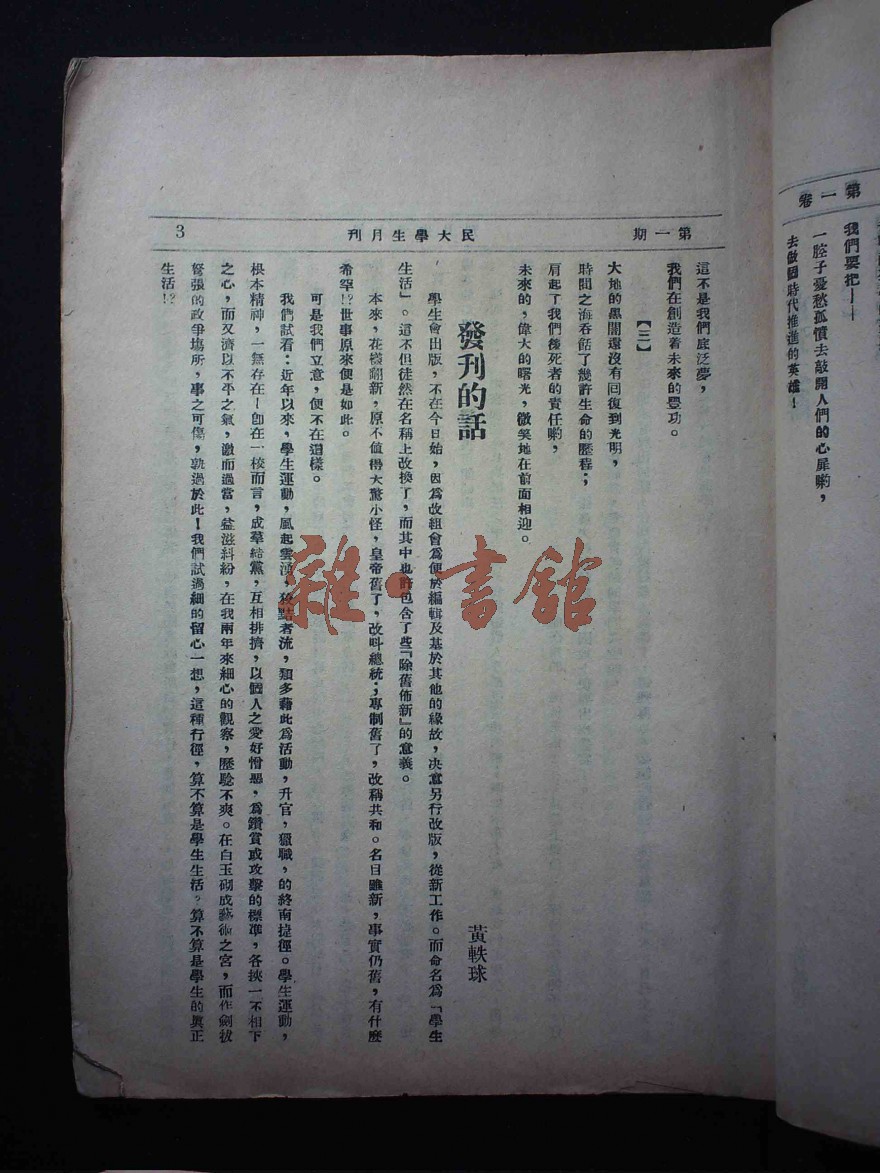 第一卷
我們要把——
一腔子憂愁孤憤去敲開人們的心扉喲，
去做個時代推進的英雄！
第一期
民大學生月刊
3
這不是我們底泛夢，
我們在創造着未來的豐功。
【三】
大地的黑闇還沒有回復到光明，
時間之海吞餂了幾許生命的歷程；
肩起了我們後死者的責任喲，
未來的，偉大的曙光，微笑地在前面相迎。
發刊的話
黃軼球
學生會出版，不在今日始，因爲改組會爲便於編輯及基於其他的緣故，决意另行改版，從新工作。而命名爲「學生
生活」。這不但徒然在名稱上改換了，而其中也許包含了些「除舊佈新」的意義。
本來，花樣翻新，原不值得大驚小怪，皇帝舊了，改呌總統；專制舊了，改稱共和。名目雖新，事實仍舊，有什麼
希罕!?世事原來便是如此。
可是我們立意，便不在這樣。
我們試看：近年以來，學生運動，風起雲湧，狡黠者流，類多藉此爲活動，升官，獵職，的終南捷徑。學生運動，
根本精神，一無存在！卽在一校而言，成羣結黨，互相排擠，以個人之愛好憎惡，爲鑽賞或攻擊的標準，各挾一不相下
之心，而又濟以不平之氣，激而過當，益滋糾紛，在我兩年來細心的觀察，歷騐不爽。在白玉砌成藝術之宮，而作劍拔
弩張的政爭塲所，事之可傷，孰過於此！我們試過細的留心一想，這種行徑，算不算是學生生活？算不算是學生的眞正
生活!?
雜·書館